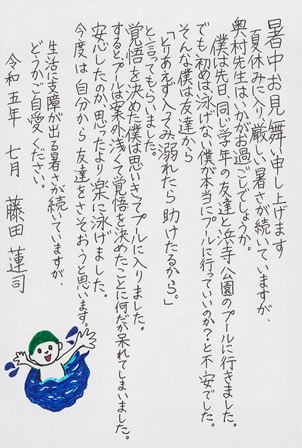 暑中お見舞い申し上げます
夏休みに入り厳しい暑さが続いていますが、
奥村先生はいかがお過ごしでしょうか。
僕は先日、同じ学年の友達と浜寺公園のプールに行きました。
でも初めは泳げない僕が本当にプールに行っていいのか?と不安でした。
そんな僕は友達から
「とりあえず入ってみ溺れたら助けたるから。」
と言ってもらいました。
覚悟を決めた僕は思いきってプールに入りました。
するとプールは案外浅くて覚悟を決めたことに何だか呆れてしまいました。
安心したのか、思ったより楽に泳げました。
今度は自分から友達をさそおうと思います。
生活に支障が出る暑さが続いていますが、
どうかご自愛ください。
令和五年 七月 藤田蓮司